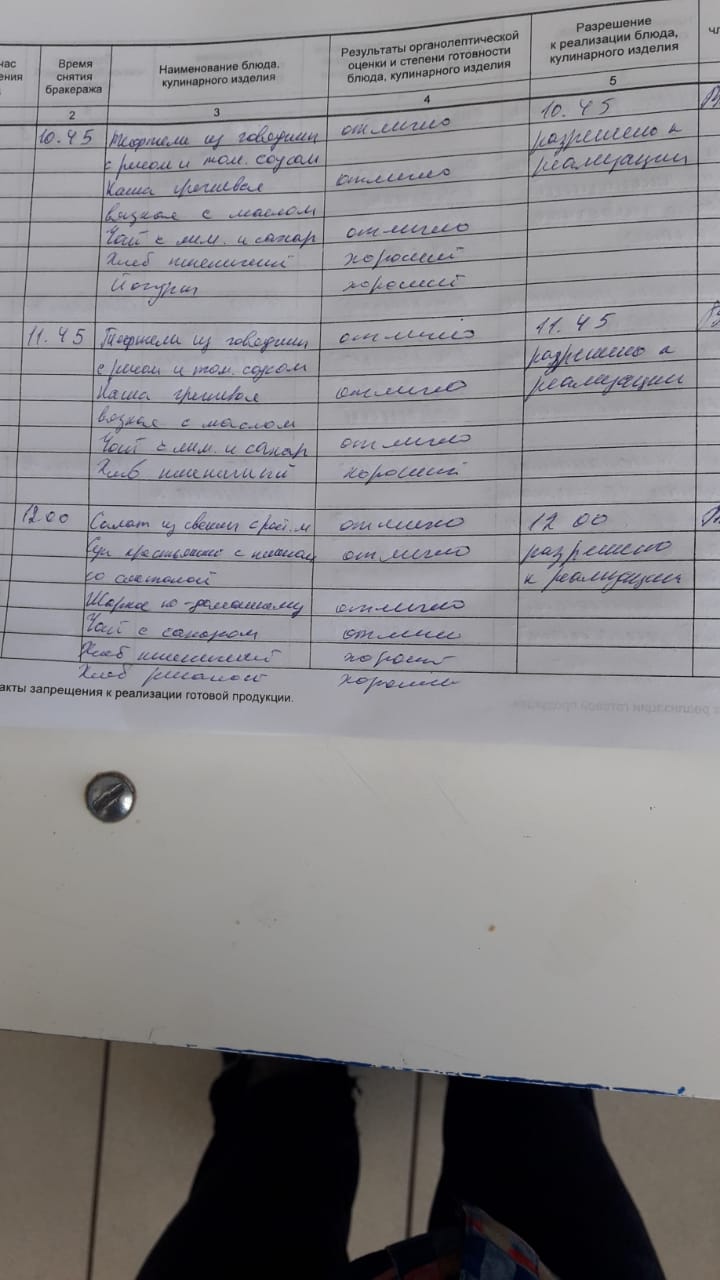 час
ения
Время
снятия
бракеража
Наименование блюда,
кулинарного изделия
Результаты органолептической
оценки и степени готовности
блюда, кулинарного изделия
Разрешение
к реализации блюда,
кулинарного изделия
чл
2 3 4 5
10.45 Тефтели из говядины отлично 10.45
с рисом и том. соусом разрешено к
Каша гречневая отлично реализации
вязкая с маслом
Чай с лим. и сахар отлично
Хлеб пшеничный хороший
Йогурт хороший
11.45 Тефтели из говядины отлично 11.45
с рисом и том. соусом разрешено к
Каша гречневая отлично реализации
вязкая с маслом
Чай с лим. и сахар отлично
Хлеб пшеничный хороший
12 00 Салат из свежих с раст. м отлично 12 00
Суп крестьянский с пшеном отлично разрешено
со сметаной к реализации
Жаркое по-домашнему отлично
Чай с сахаром отлич
Хлеб пшеничный хороший
Хлеб ржаной хороший
акты запрещения к реализации готовой продукции.